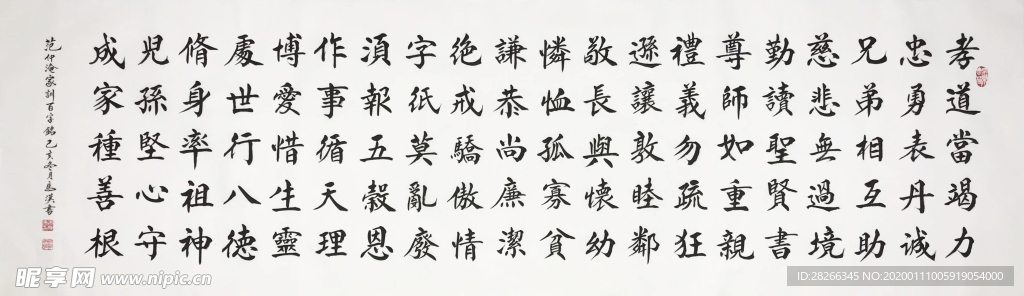 孝道當竭力
忠勇表丹诚
兄弟相互助
慈悲無過境
勤讀聖賢書
尊師如重親
禮義勿疏狂
遜讓敦睦鄰
敬長與懷幼
憐恤孤寡貧
謙恭尚廉潔
绝戒驕傲情
字纸莫亂廢
須報五穀恩
作事循天理
博愛惜生靈
處世行八德
脩身率祖神
児孫堅心守
成家種善根
范仲淹家訓百字銘己亥冬月
昵享网 www.nipic.cn
ID:28266345 NO:20200111005919054000